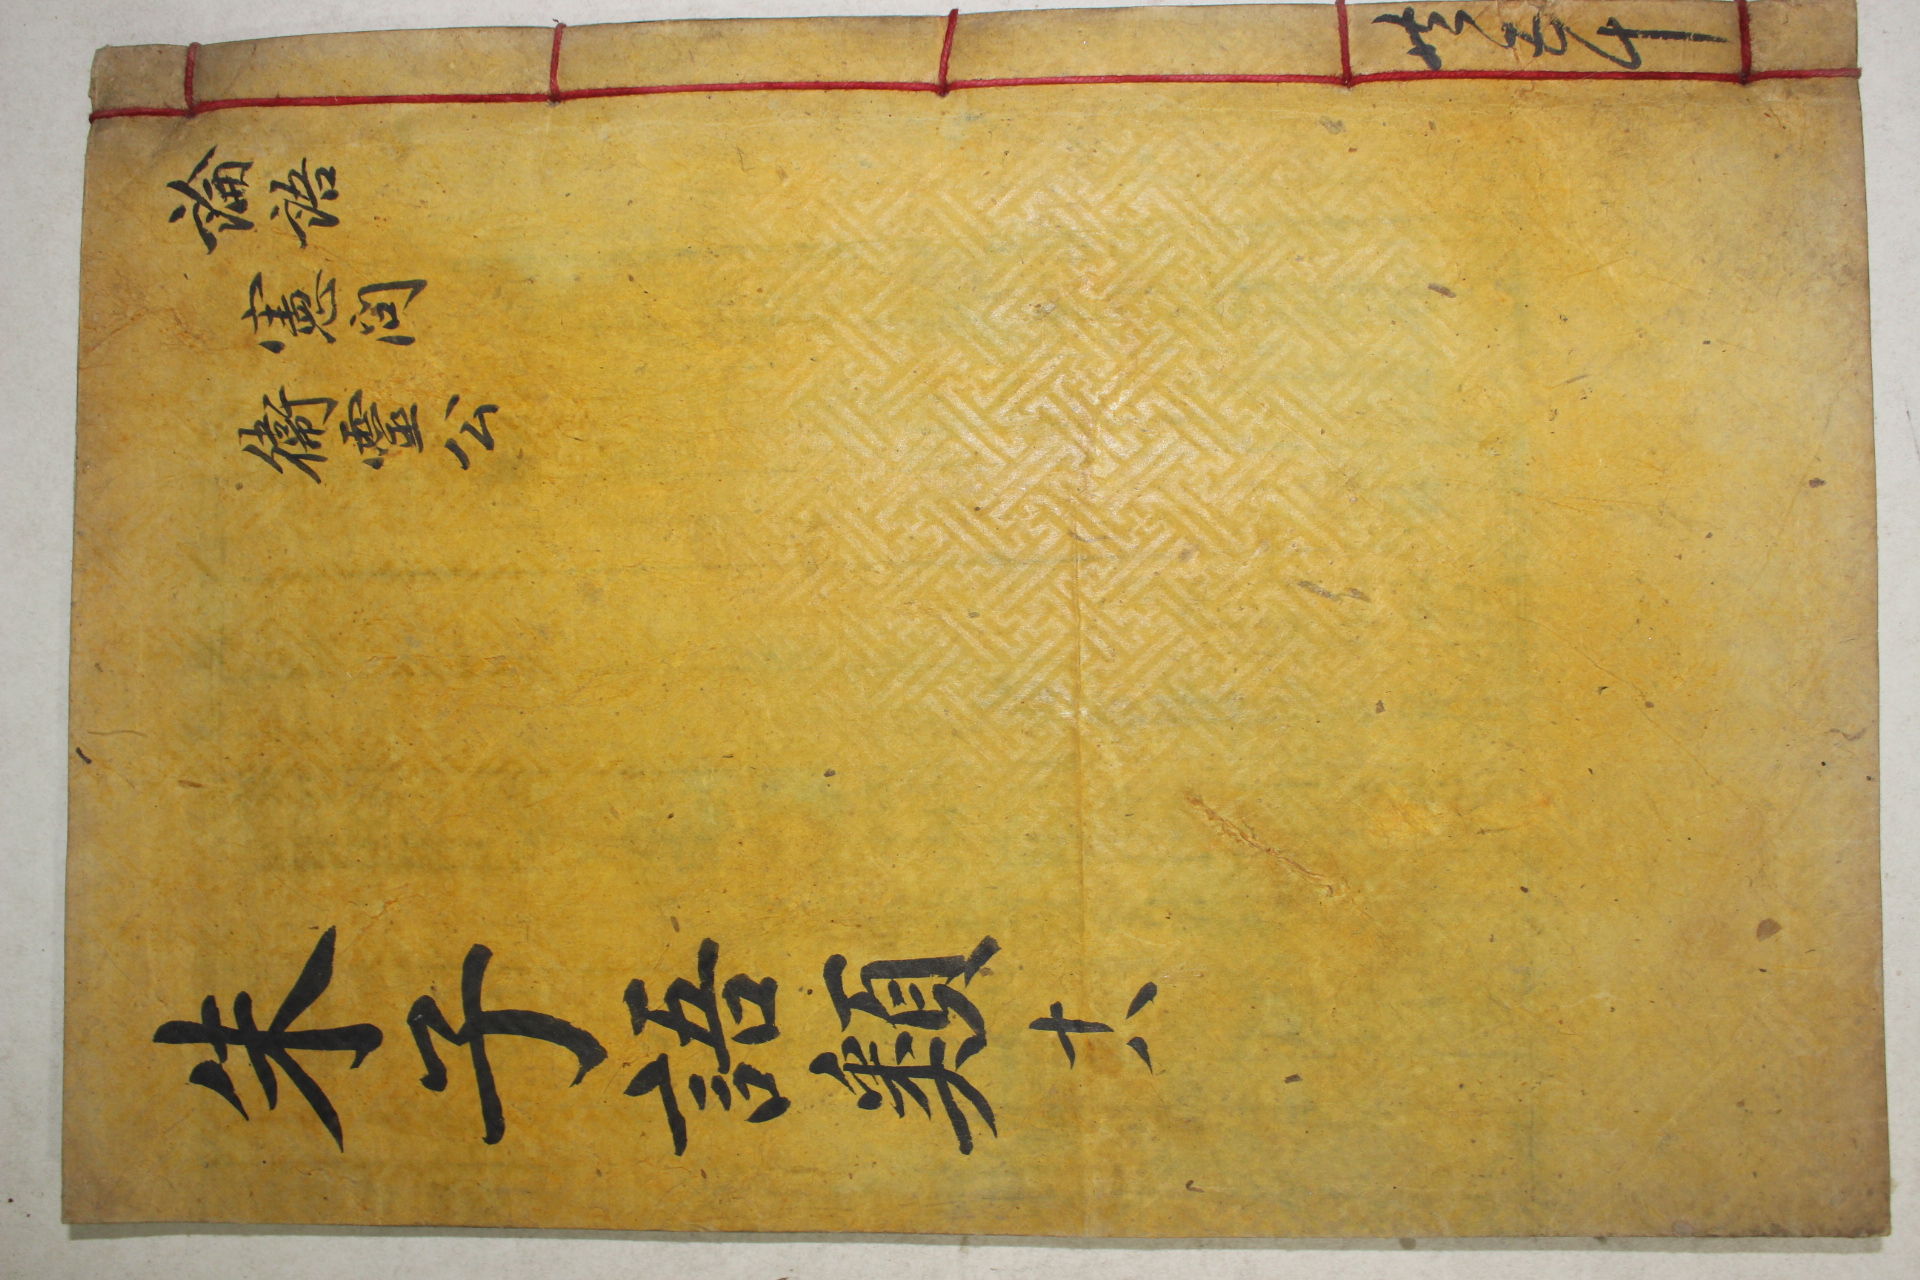 論語
憲問
衞靈公
朱子語類 十八
共五十